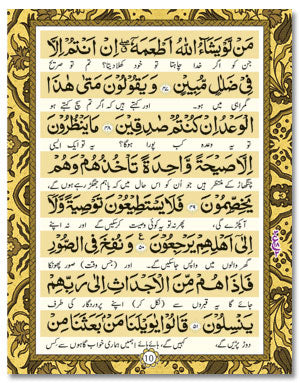 مَنْ لَّوْ يَشَآءُ اللّٰهُ اَطْعَمَهٗٓ اِنْ اَنْتُمْ اِلَّا
جن کو اگر خدا چاہتا تو خود کھلا دیتا؟ تم تو صریح
فِيْ ضَلٰلٍ مُّبِيْنٍ ۝۴۷ وَيَقُوْلُوْنَ مَتٰى هٰذَا
گمراہی میں ہو۔ اور کہتے ہیں کہ اگر تم سچ کہتے ہو
الْوَعْدُ اِنْ كُنْتُمْ صٰدِقِيْنَ ۝۴۸ مَا يَنْظُرُوْنَ
تو یہ وعدہ کب پورا ہوگا؟ یہ تو ایک ایسی
اِلَّا صَيْحَةً وَّاحِدَةً تَاْخُذُهُمْ وَهُمْ
چنگھاڑ کے منتظر ہیں جو اُن کو اس حال میں کہ باہم جھگڑ رہے ہوں گے،
يَخِصِّمُوْنَ ۝۴۹ فَلَا يَسْتَطِيْعُوْنَ تَوْصِيَةً وَّلَآ
آپکڑے گی۔ پھر نہ تو یہ کوئی وصیت کرسکیں گے اور نہ اپنے
اِلٰٓى اَهْلِهِمْ يَرْجِعُوْنَ ۝۵۰ وَنُفِخَ فِي الصُّوْرِ
گھر والوں میں واپس جاسکیں گے۔ اور (جس وقت) صور پھونکا
فَاِذَا هُمْ مِّنَ الْاَجْدَاثِ اِلٰى رَبِّهِمْ
جائے گا یہ قبروں سے (نکل کر) اپنے پروردگار کی طرف
يَنْسِلُوْنَ ۝۵۱ قَالُوْا يٰوَيْلَنَا مَنْۢ بَعَثَنَا مِنْ
دوڑ پڑیں گے، کہیں گے، ہائے ہائے! ہمیں ہماری خواب گاہوں سے کس
10